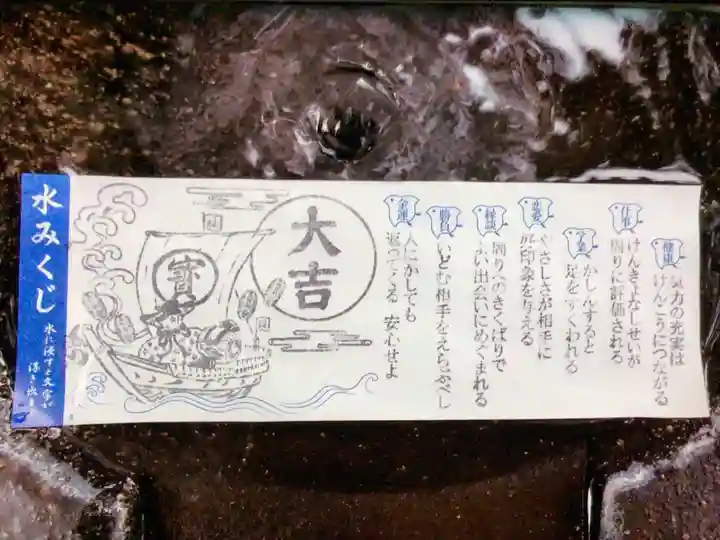 水みくじ
水に浸すと文字が
浮き出ま
大吉
寳
健康
気力の充実は
けんこうにつながる
仕事
けんきよなしせいが
周りに評価される
学業
かしんすると
足をすくわれる
恋愛
やさしさが相手に
好印象を与える
縁談
周りへのきくばりで
良い出会いにめぐまれる
勝負
いどむ相手をえらぶべし
金運
人にかしても
返ってくる 安心せよ